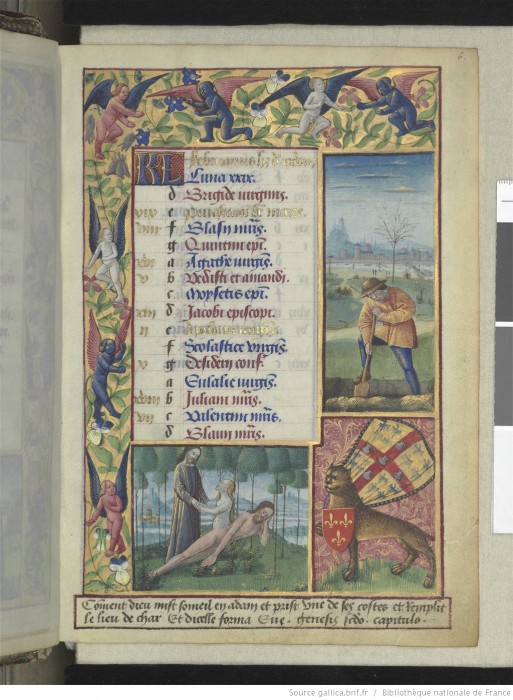 KL
Luna xxix.
d Brigide virginis.
e
f Blasii mris.
g Quintini epi.
a Agathe virgis.
b Vedasti et amandi.
c Moysetis epi.
d Jacobi episcopi.
e
f Scolastice virgis.
g Desiderii conf.
a Eulalie virgis.
b Juliani mris.
c Valentini mris.
d mris.
Coment dieu mist someil en adam et prist vne de ses costes et remplit
le lieu de char Et dicelle forma Eue. genesis scdo. capitulo.
Source gallica.bnf.fr / Bibliothèque nationale de France